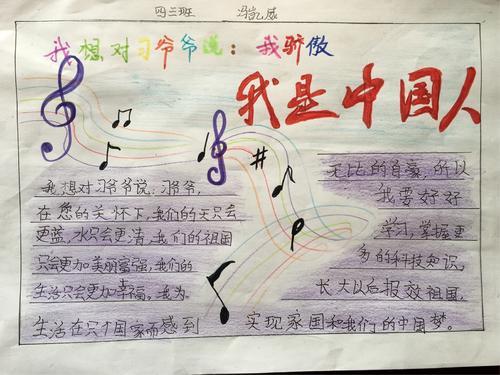 四三班 冯凯威
我想对习爷爷说：我骄傲
我是中国人
我想对习爷爷说：习爷爷，
在您的关怀下，我们的天只会
更蓝，水只会更清，我们的祖国
只会更加美丽富强，我们的
生活只会更加幸福。我为
生活在这个国家而感到
无比的自豪，所以
我要好好
学习，掌握更
多的科技知识，
长大以后报效祖国，
实现家国和我们的中国梦。